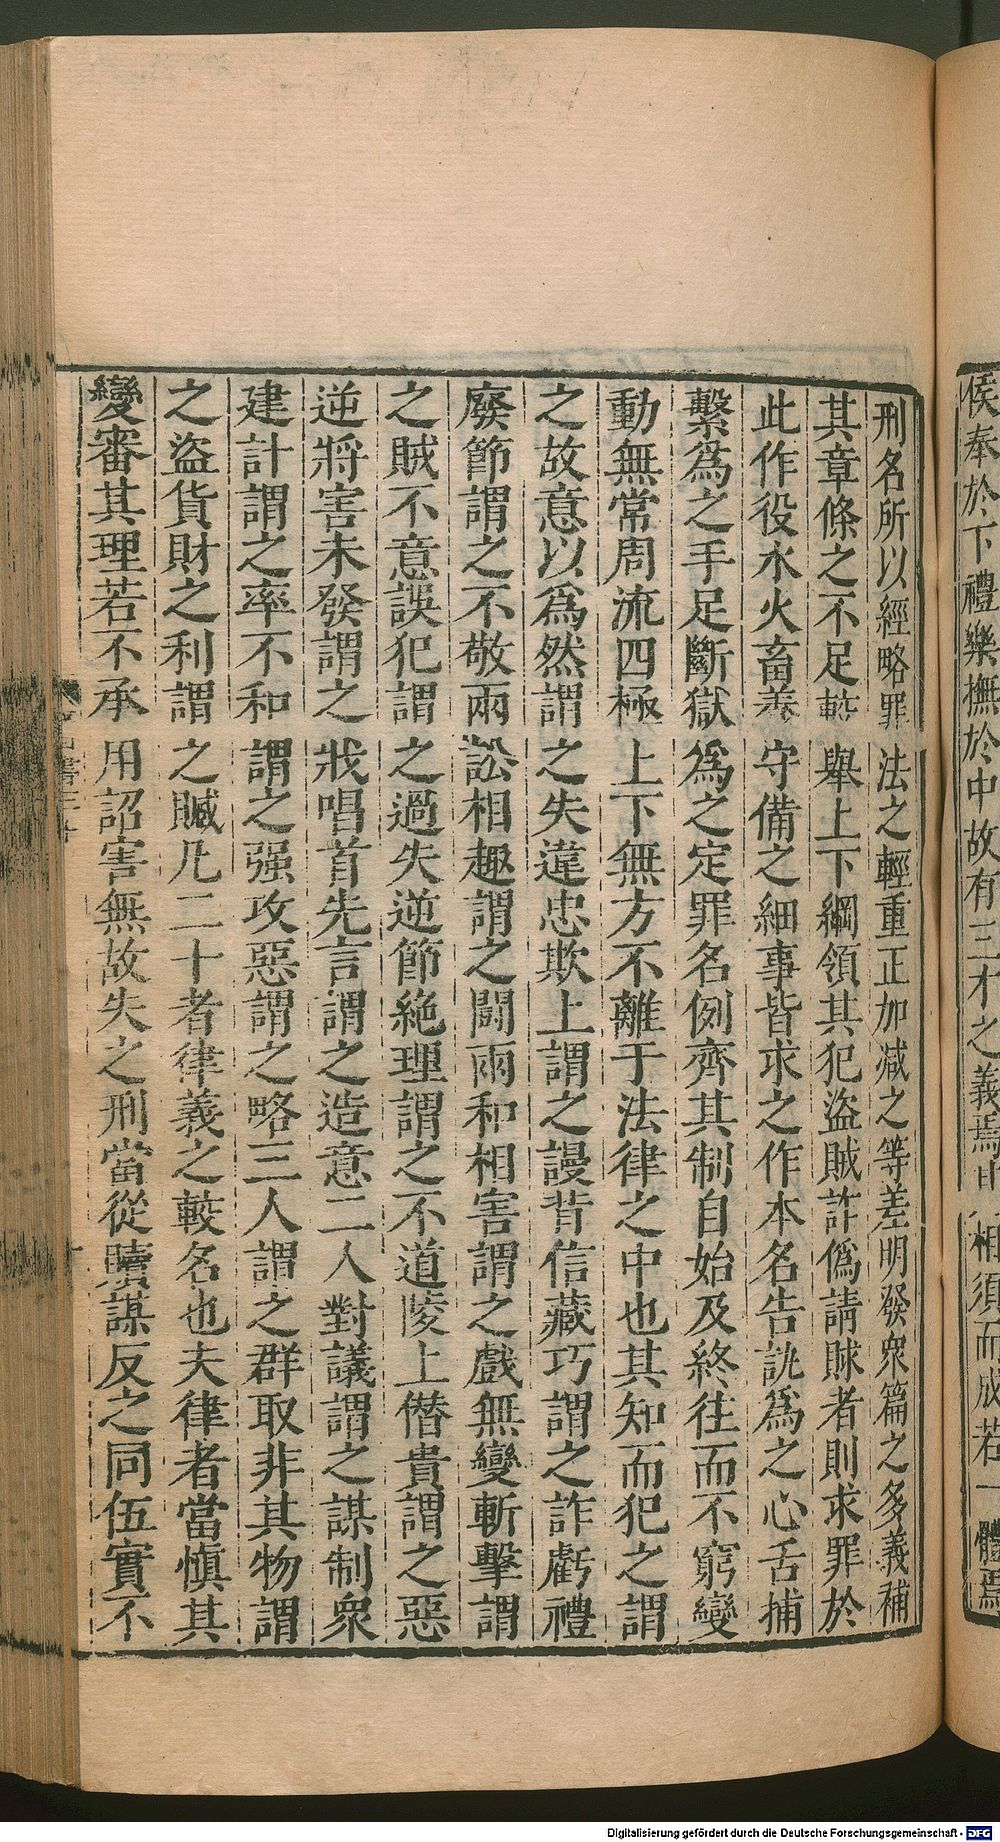 侯奉於下禮樂撫於中故有三才之義焉相須而成若一體焉
刑名所以經略罪法之輕重正加減之等差明發衆篇之多義補
其章條之不足較舉上下綱領其犯盜賊詐僞請賕者則求罪於
此作役水火畜養守備之細事皆求之作本名告訊爲之心舌捕
繫爲之手足斷獄爲之定罪名例齊其制自始及終往而不窮變
動無常周流四極上下無方不離于法律之中也其知而犯之謂
之故意以爲然謂之失違忠欺上謂之謾背信藏巧謂之詐虧禮
廢節謂之不敬兩訟相趣謂之鬪兩和相害謂之戲無變斬擊謂
之賊不意誤犯謂之過失逆節絶理謂之不道陵上僭貴謂之惡
逆將害未發謂之戕唱首先言謂之造意二人對議謂之謀制衆
建計謂之率不和謂之强攻惡謂之略三人謂之群取非其物謂
之盜貨財之利謂之贓凡二十者律義之較名也夫律者當慎其
變審其理若不承用詔害無故失之刑當從贖謀反之同伍實不
Digitalisierung gefördert durch die Deutsche Forschungsgemeinschaft - DFG